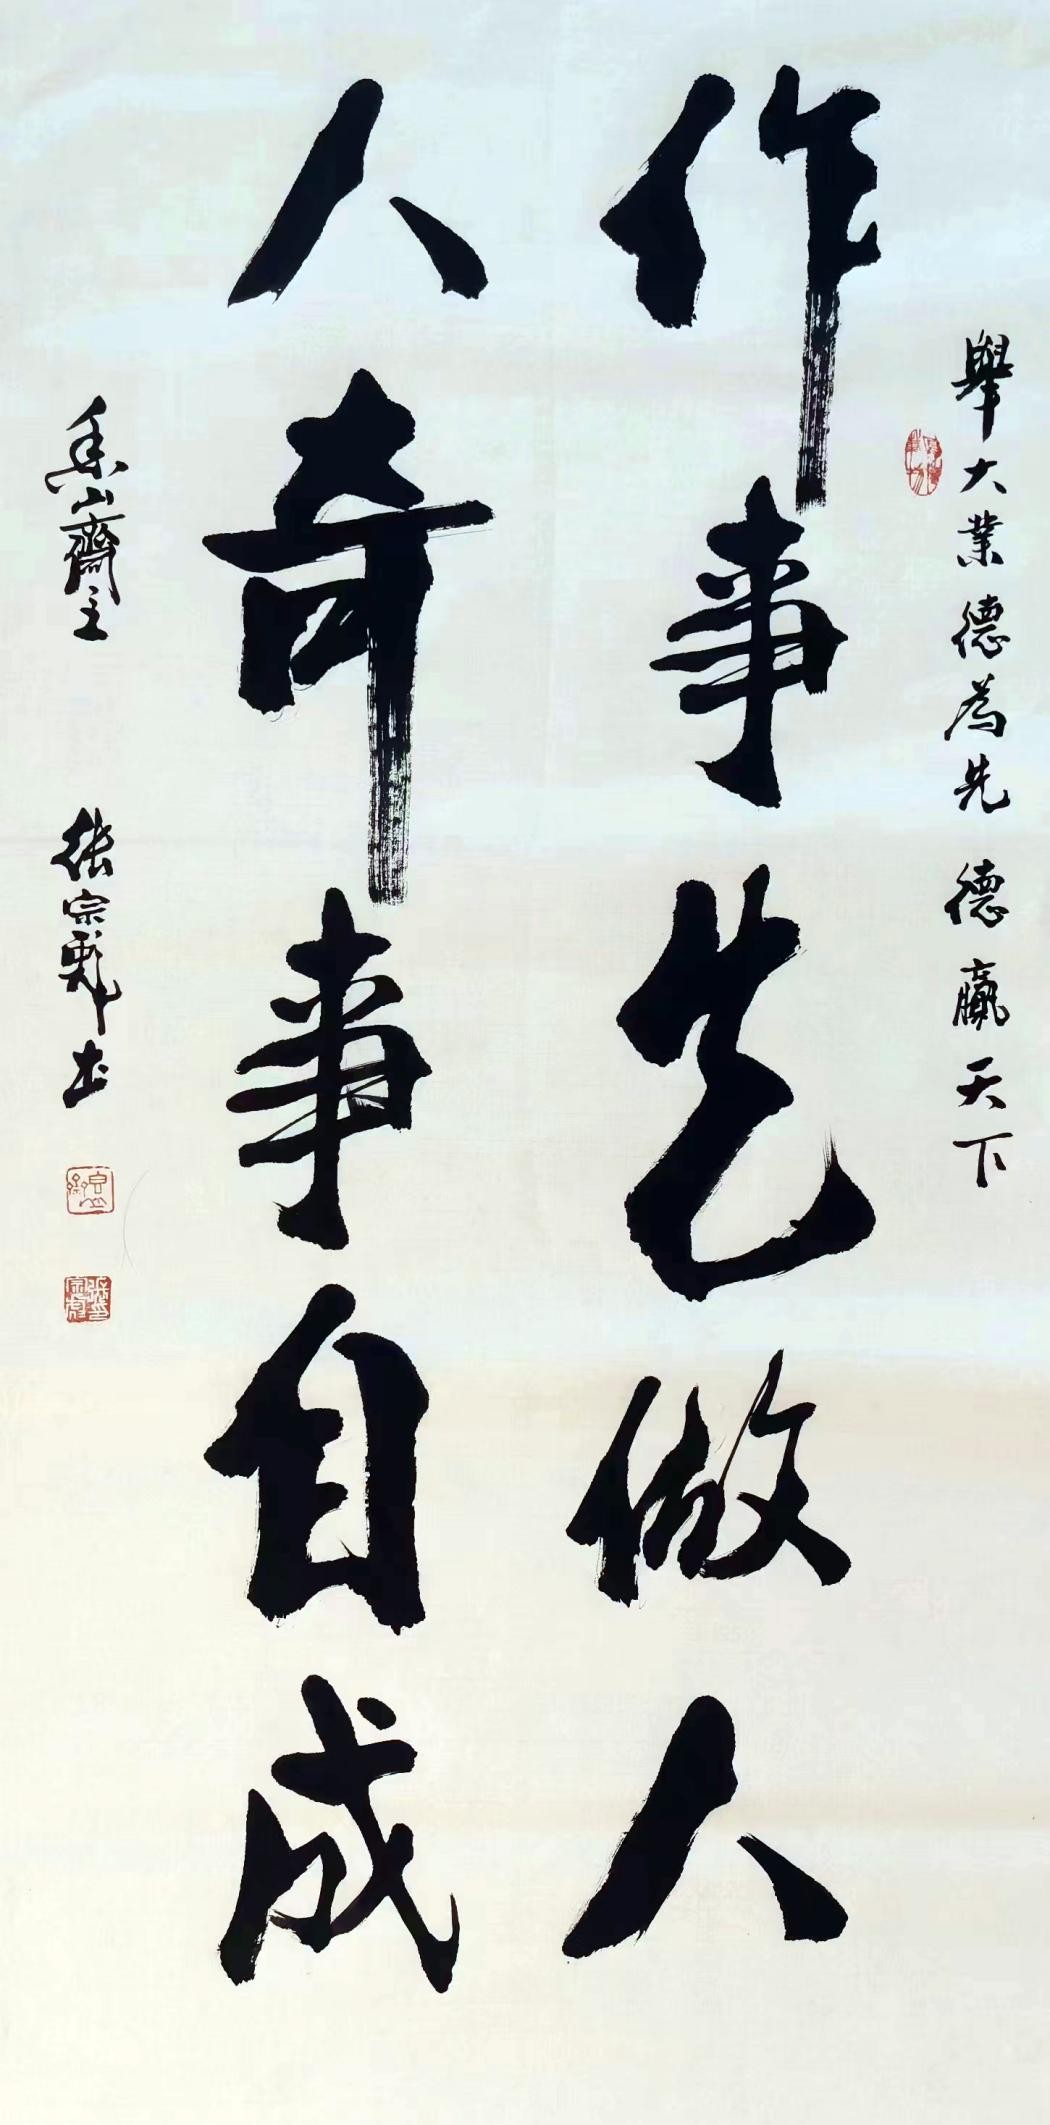 舉大業德為先 德贏天下
作事先做人
人奇事自成
山齋主 張宗彪書